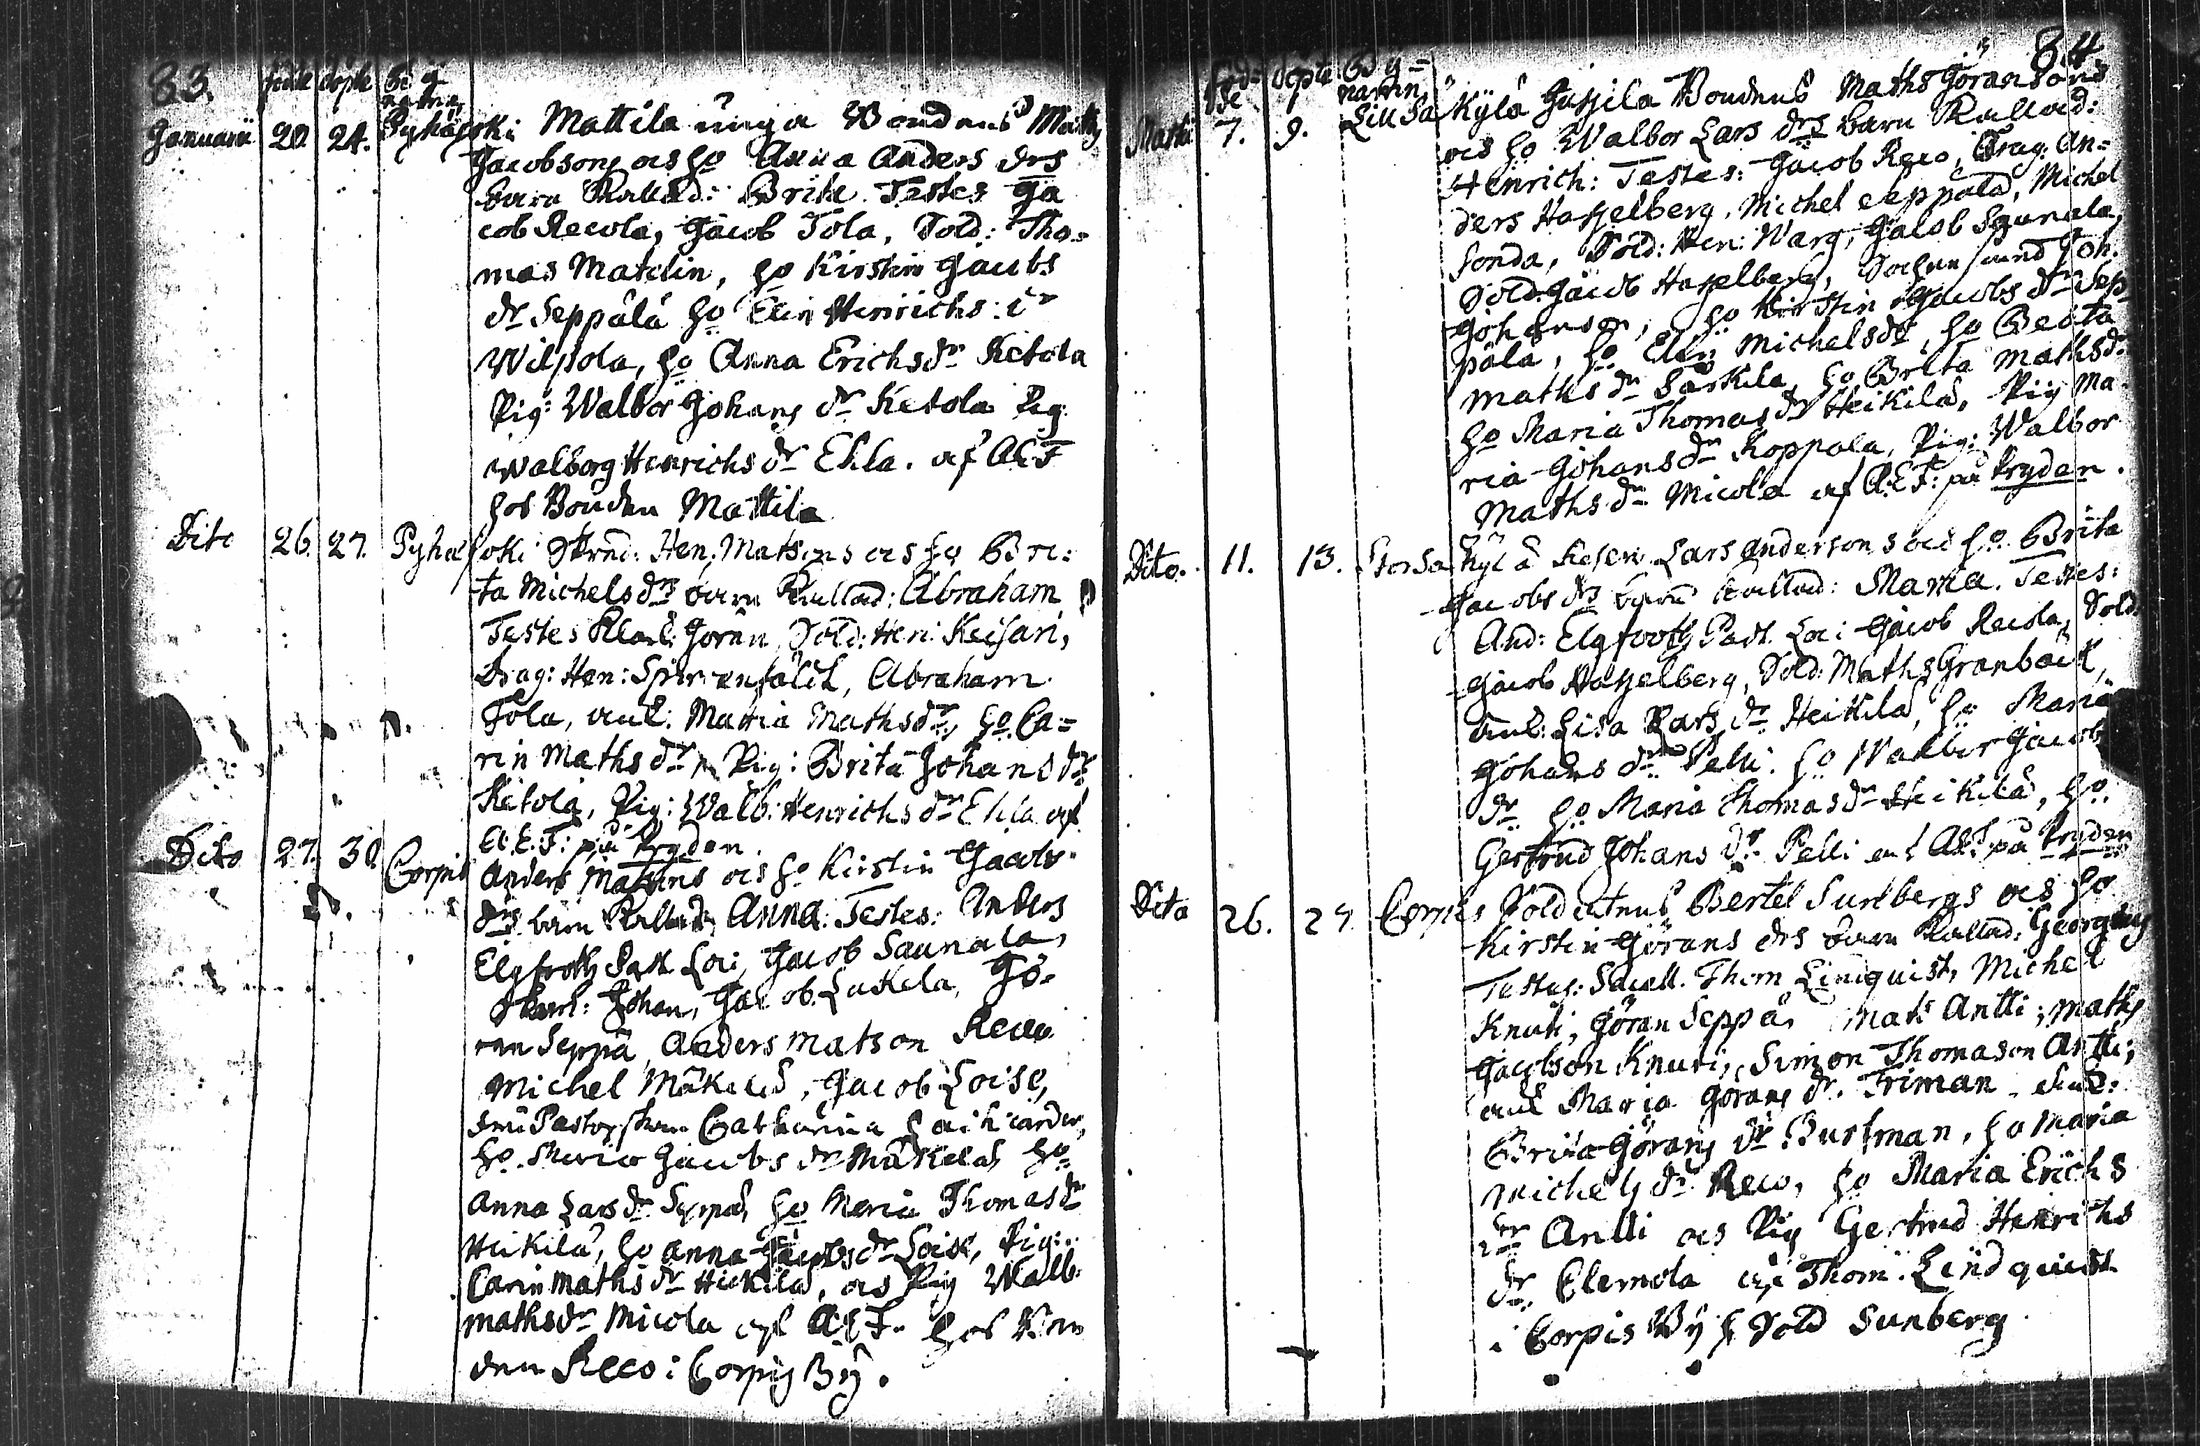 83. född döpte Bÿ
namn
Januarii 20 24. Pyhäjoki Mattila unga Bondens Maths
Jacobsons och ho Anna Anders drs
barn Kallad: Brita. Testes Ja
cob Recola, Jacob Tola, Sold: Tho=
mas Matelin, ho Kirstin Jacobs
dr Seppälä ho Elin Henrichs: dr
Wilpola, ho Anna Erichs dr Ketola
Pig: Walbor Johans dr Ketola Pig.
Walborg Henrichs dr Ehla. af AEF
hos Bonden Mattila
Dito 26. 27. Pyhäjoki Hen. Matsons och ho Bri:
ta Michels drs barn Kallad: Abraham
Testes Göran, Sold: Hen: Keisari,
Drag: Hen: Abraham
Tola, Maria Mathsdr, ho Ca=
rin Maths dr Pig: Brita Johans dr
Ketola, Pig: Walb: Henrichs dr Ehla af
A.E.F: på Pryden.
Dito 27. 30. Corpis Anders Matsons och ho Kirstin Jacobs
drs barn Kallad: Anna. Testes: Anders
Elgfooth Past. Loci, Jacob Saunala,
Johan, Jacob Luckela, Gö=
ran Seppä, Anders Matson Reco
Michel Mäkelä, Jacob Loise,
Catharina
ho. Maria Jacobs dr Mäkelä, ho
Anna Lars dr Seppä, ho Maria Thomas dr
Heikilä, ho Anna Jacobs dr Loise, Pig:
Carin Maths dr Heikilä, och Pig Walb:
Maths dr Micola af AEF. hos Bon
den Reco i Corpis Bÿ.
84
föd= döpte Bÿ=
de namn
Martii 7. 9. Lill Säkylä Hassila Bondens Maths Göransons
och ho Walbor Lars drs barn Kallad:
Henrich: Testes: Jacob Reco, Drag: An=
ders Hasselberg, Michel Seppälä, Michel
Sonda, Sold: Hen: Warg, Jacob Saunala,
Sold. Jacob Hasselberg, Joh.
Johanson, ho Kirstin Jacobs dr Sep
pälä, ho Elin Michelsdr, ho Beata
Maths dr Särkilä, ho Brita Mathsdr
ho Maria Thomas dr Heikilä, Pig Ma
ria Johans dr Koppala, Pig: Walbor
Maths dr Micola af A.E.F: på Pryden.
Dito. 11. 13. Stor Säkylä Lars Andersons och ho. Brita
Jacobs drs barn Kallad: Maria. Testes:
And: Elgfooth Past. Loci Jacob Recola, Sold.
Jacob Hasselberg, Sold: Maths Granback,
Lisa Lars dr Heikilä, ho Maria
Johans dr Pelli. ho Walbor Jacobs
dr ho Maria Thomas dr Heikilä, ho.
Gertrud Johans dr Pelli af AEF på Pryden
Dito 26. 27. Corpis Soldatens Bertel Sunbergs och ho
Kirstin Görans drs barn Kallad: Georgius
Testes: Thom Lindquist, Michel
Knuti, Göran Seppä, Mats Antti, Maths
Jacobson Knuti, Simon Thomason Antti,
Maria Görans dr. Friman
Brita Görans dr Burman, ho Maria
Michels dr Reco, ho Maria Erichs
dr Antti och Pig Gertrud Henrichs
dr Clemola af Thom. Lindquist
i Corpis Bÿ h Sold Sunberg